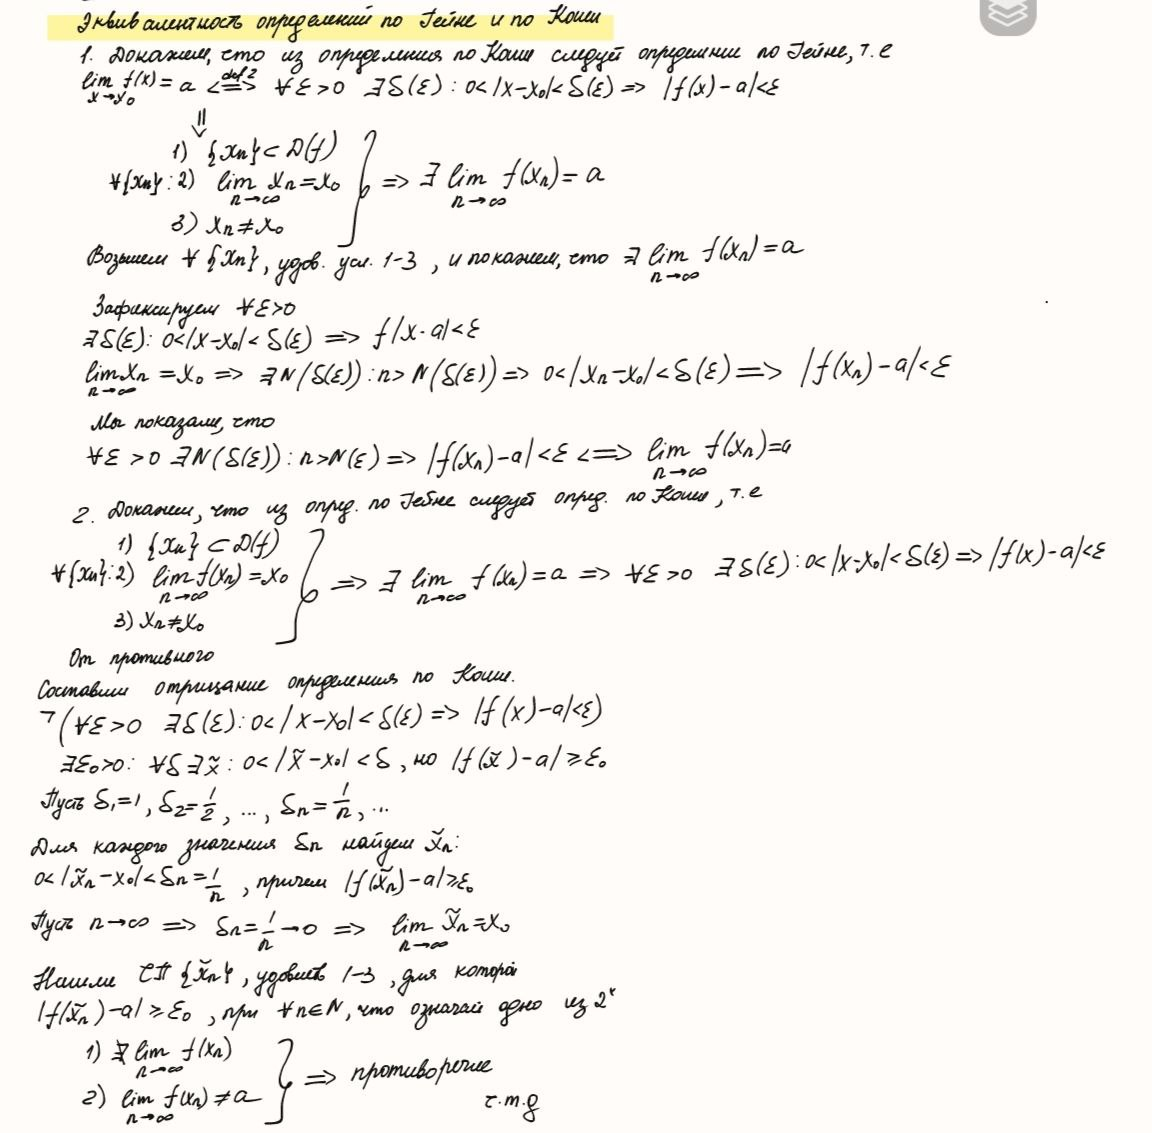 Эквивалентность определений по Гейне и по Коши
1. Докажем, что из определения по Коши следует определение по Гейне, т.е
lim f(x) = a <=> ∀ε>0 ∃δ(ε) : 0<|x-x₀|<δ(ε) => |f(x)-a|<ε
x→x₀ def 2
⇓
1) {xₙ} ⊂ D(f)
∀{xₙ} : 2) lim xₙ = x₀ => ∃ lim f(xₙ) = a
n→∞ n→∞
3) xₙ ≠ x₀
Возьмем ∀ {xₙ}, удов. усл. 1-3, и покажем, что ∃ lim f(xₙ) = a
n→∞
Зафиксируем ∀ε>0
∃δ(ε): 0<|x-x₀|<δ(ε) => f|x-a|<ε
lim xₙ = x₀ => ∃N(δ(ε)) : n>N(δ(ε)) => 0<|xₙ-x₀|<δ(ε) => |f(xₙ)-a|<ε
n→∞
Мы показали, что
∀ε>0 ∃N(δ(ε)) : n>N(ε) => |f(xₙ)-a|<ε <=> lim f(xₙ)=a
n→∞
2. Докажем, что из опред. по Гейне следует опред. по Коши, т.е
1) {xₙ} ⊂ D(f)
∀{xₙ}: 2) lim f(xₙ) = x₀ => ∃ lim f(xₙ) = a => ∀ε>0 ∃δ(ε) : 0<|x-x₀|<δ(ε) => |f(x)-a|<ε
n→∞ n→∞
3) xₙ ≠ x₀
От противного
Составим отрицание определения по Коши.
¬(∀ε>0 ∃δ(ε): 0<|x-x₀|<δ(ε) => |f(x)-a|<ε)
∃ε₀>0: ∀δ ∃x̃ : 0<|x̃-x₀|<δ, но |f(x̃)-a|≥ε₀
Пусть δ₁=1, δ₂=1/2, ..., δₙ=1/n, ...
Для каждого значения δₙ найдем x̃ₙ:
0<|x̃ₙ-x₀|<δₙ=1/n, причем |f(x̃ₙ)-a|≥ε₀
Пусть n→∞ => δₙ=1/n→0 => lim x̃ₙ=x₀
n→∞
Нашли {x̃ₙ}, удовлет 1-3, для которой
|f(x̃ₙ)-a|≥ε₀, при ∀n∈N, что означает одно из 2ˣ
1) ∄ lim f(xₙ)
n→∞
2) lim f(xₙ) ≠ a => противоречие
n→∞
ч.т.д